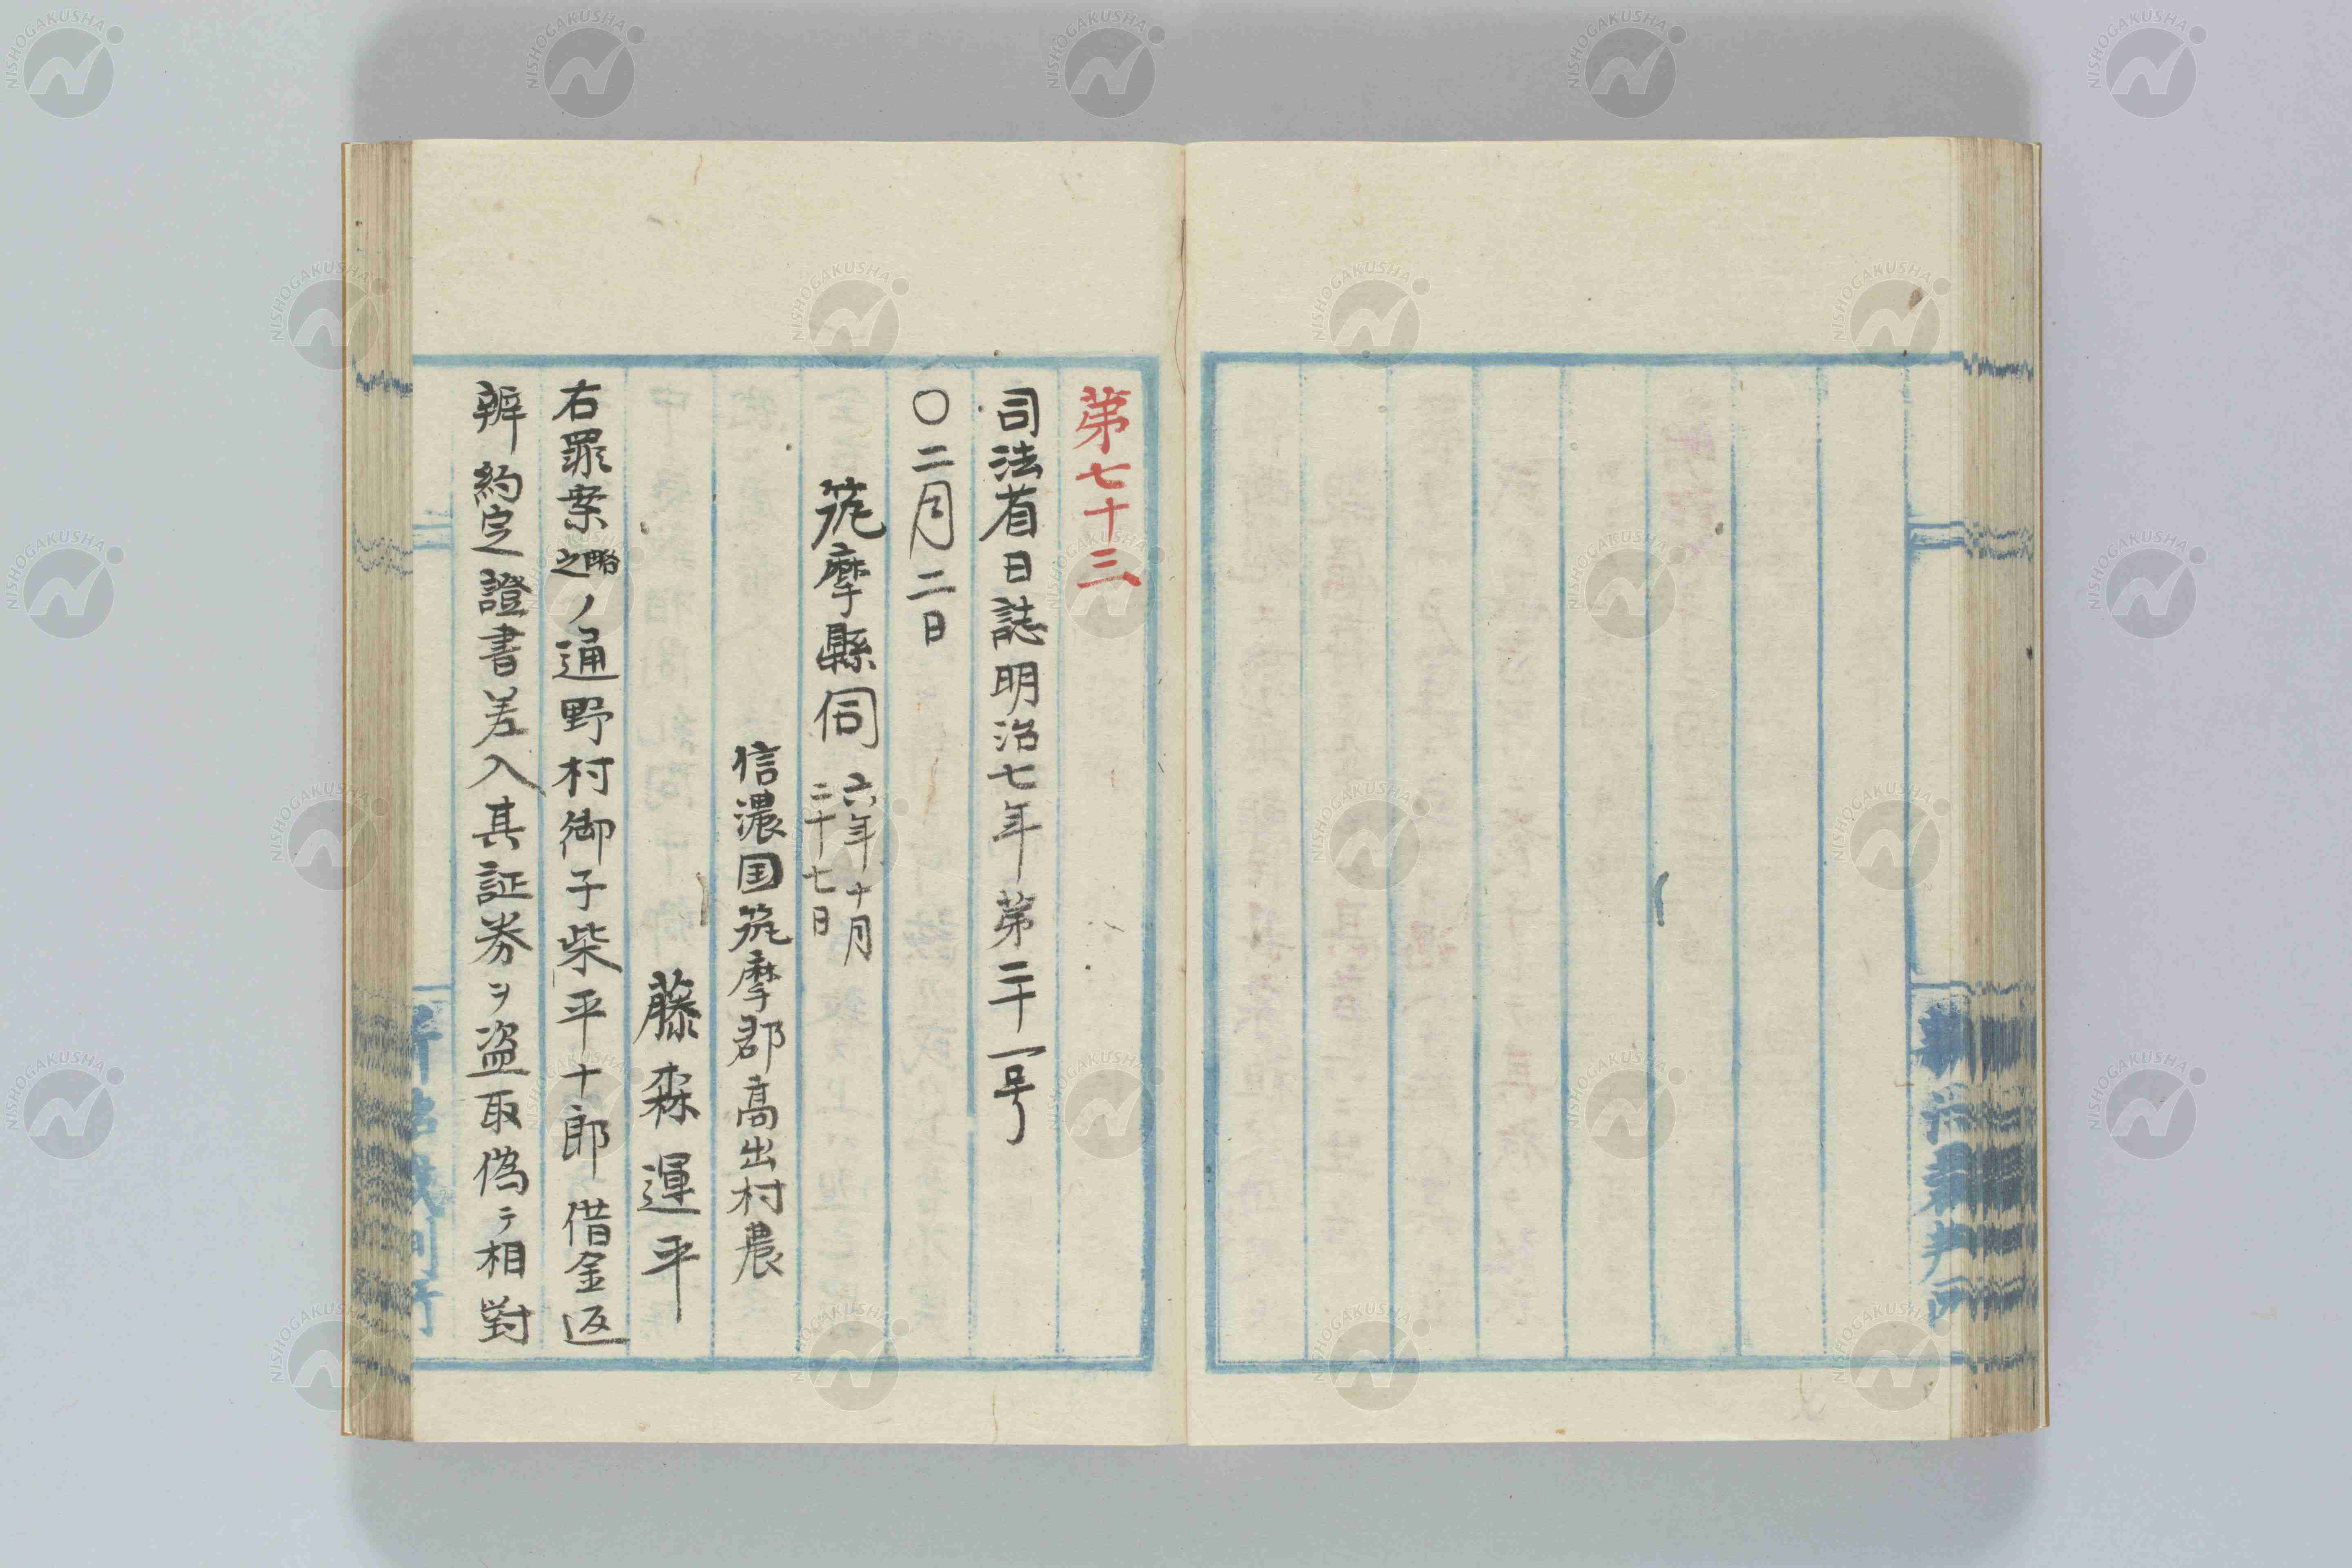 第七十三
司法省日誌明治七年第二十一号
〇二月二日
筑摩縣伺 六年十月二十七日
信濃国筑摩郡高出村農
藤森運平
右罪案略之ノ通野村御子柴平十郎借金返
辨約定證書差入其証券ヲ盗取偽テ相對
NISHOGAKUSHA